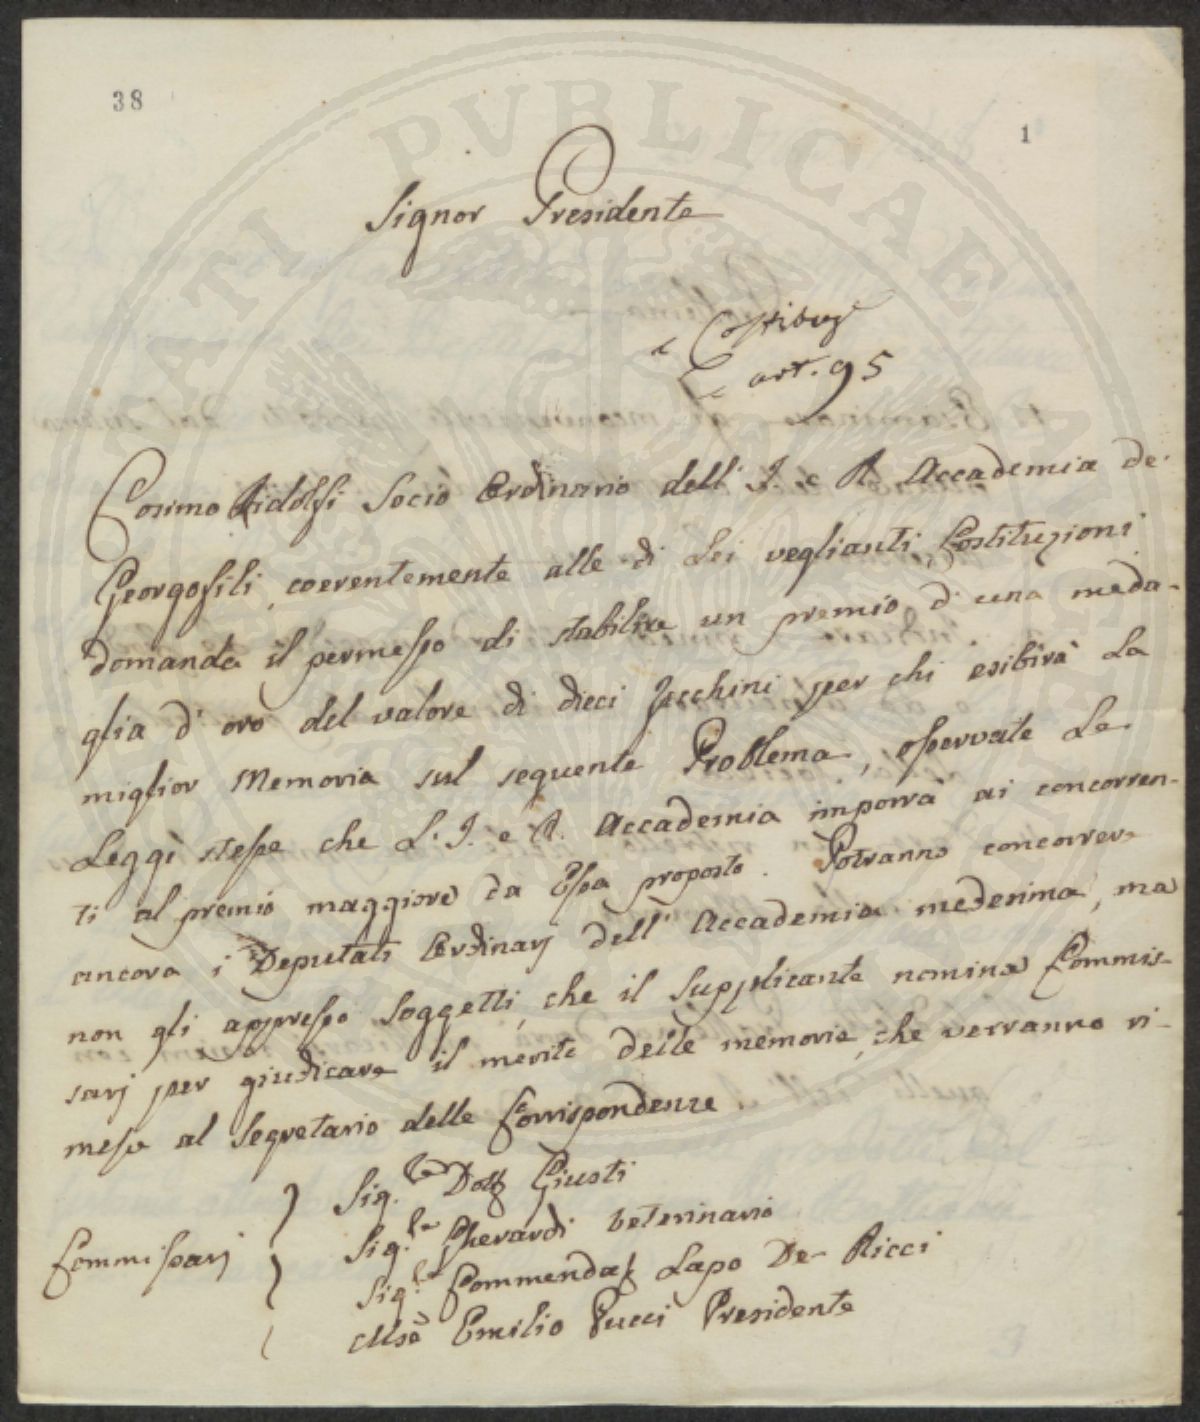 38
1
Signor Presidente
art. 95
Cosimo Ridolfi Socio Ordinario dell' I. e R. Accademia de'
Georgofili, coerentemente alle di Lei veglianti Costituzioni
domanda il permesso di stabilire un premio d' una meda-
glia d' oro del valore di dieci Zecchini per chi esibirà la
miglior Memoria sul seguente Problema, osservate le
Leggi stesse che L' I. e R. Accademia imporrà ai concorren-
ti al premio maggiore da Essa proposto. Potranno concorrer
ancora i Deputati Ordinarj dell' Accademia medesima, ma
non gli appresso Soggetti, che il Supplicante nomina Commis-
sarj per giudicare il merito delle memorie, che verranno ri-
messe al Segretario delle Corrispondenze
Sig.re Dott Giusti
Sig.re Gherardi Veterinario
Commissarj
Sig.re Commendat Lapo De Ricci
Emilio Pucci Presidente
PVBLICAE